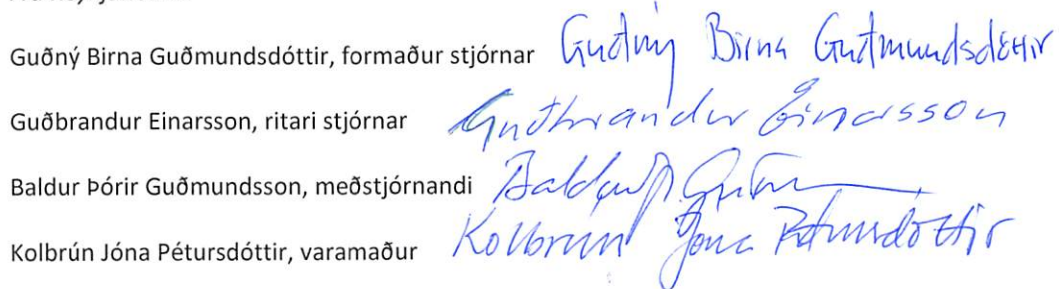 Guðný Birna Guðmundsdóttir, formaður stjórnar Guðný Birna Guðmundsdóttir
Guðbrandur Einarsson, ritari stjórnar Guðbrandur Einarsson
Baldur Þórir Guðmundsson, meðstjórnandi Baldur Þ. Guðm
Kolbrún Jóna Pétursdóttir, varamaður Kolbrún Jóna Pétursdóttir